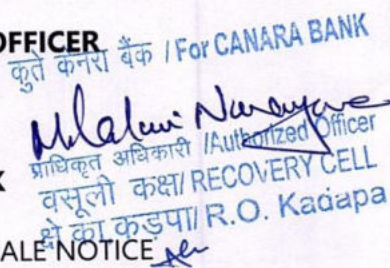 OFFICER
कृते केनरा बैंक / For CANARA BANK
प्राधिकृत अधिकारी /Authorized Officer
वसूली कक्ष/ RECOVERY CELL
क्षे का कड़पा/ R.O. Kadapa
ALE NOTICE